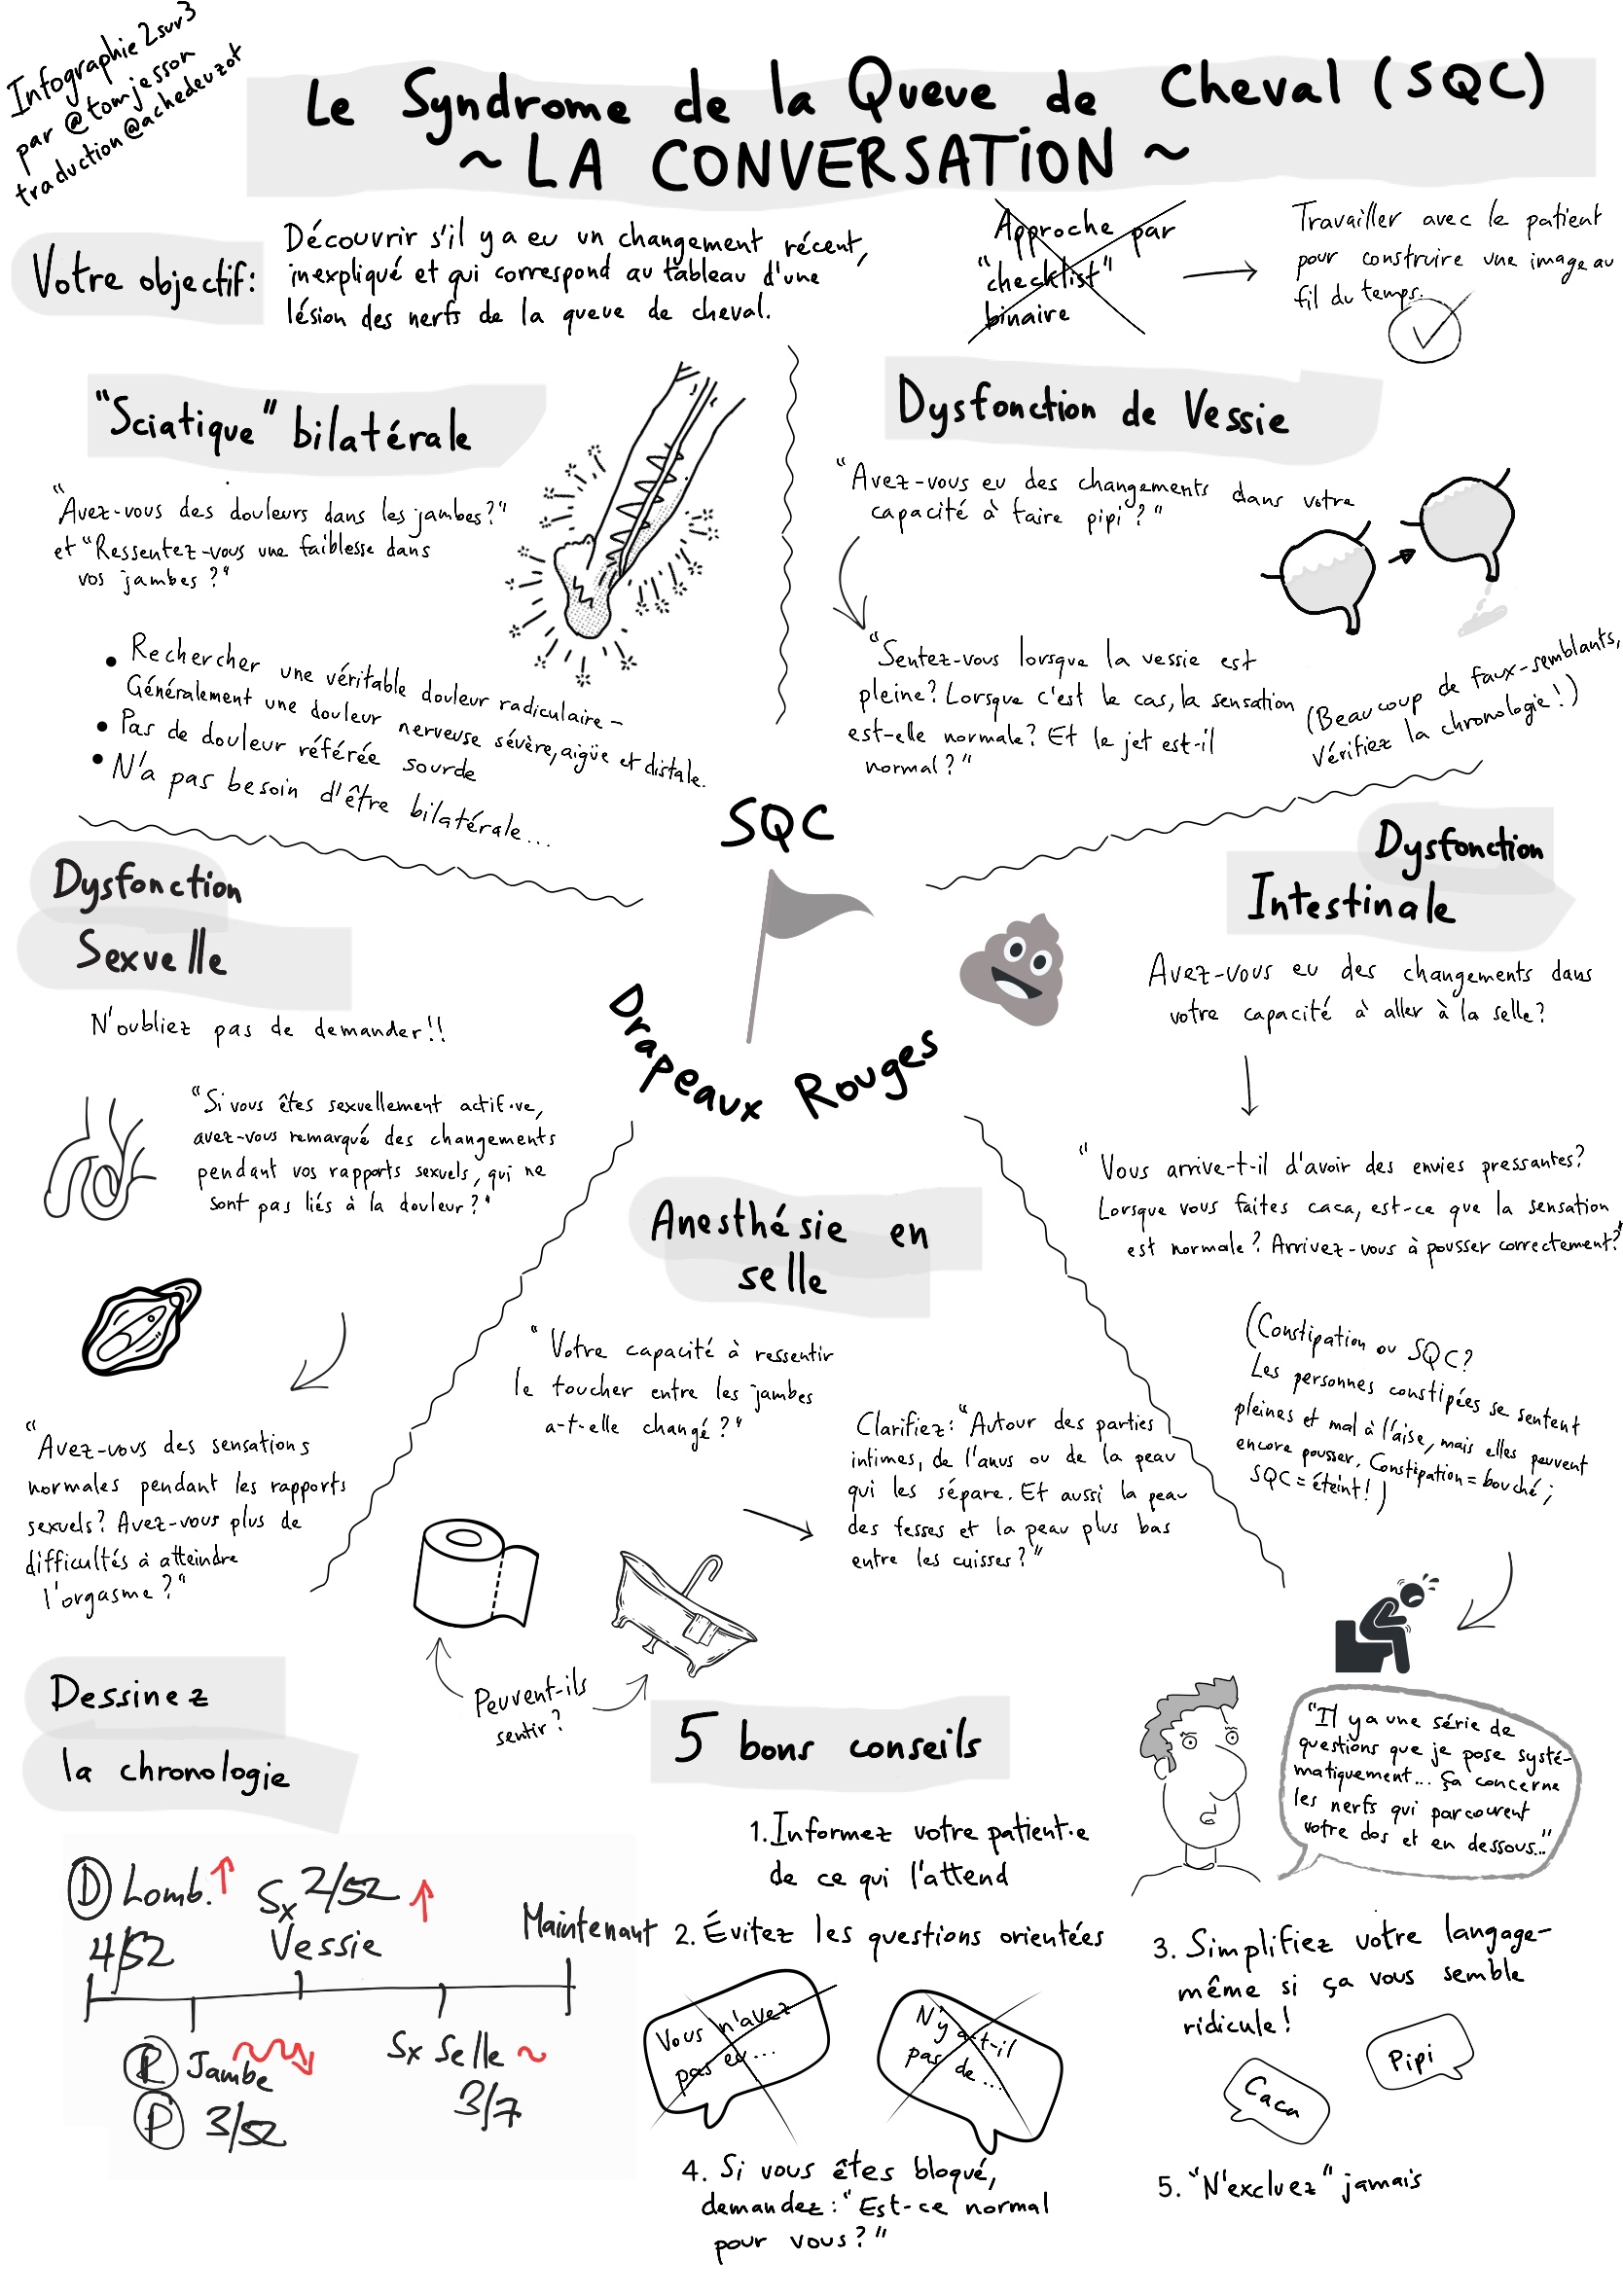 Infographie 2 sur 3
par @tomjesson
traduction @achedeuzot
Le Syndrome de la Queue de Cheval (SQC)
~ LA CONVERSATION ~
Votre objectif:
Découvrir s'il y a eu un changement récent,
inexpliqué et qui correspond au tableau d'une
lésion des nerfs de la queue de cheval.
Approche par
"checklist"
binaire
Travailler avec le patient
pour construire une image au
fil du temps.
"Sciatique" bilatérale
"Avez-vous des douleurs dans les jambes?"
et "Ressentez-vous une faiblesse dans
vos jambes?"
• Rechercher une véritable douleur radiculaire -
Généralement une douleur nerveuse sévère, aigüe et distale.
• Pas de douleur référée sourde
• N'a pas besoin d'être bilatérale...
Dysfonction de Vessie
"Avez-vous eu des changements dans votre
capacité à faire pipi?"
"Sentez-vous lorsque la vessie est
pleine? Lorsque c'est le cas, la sensation
est-elle normale? Et le jet est-il
normal?"
(Beaucoup de faux-semblants,
Vérifiez la chronologie!)
SQC
Drapeaux Rouges
Dysfonction
Sexuelle
N'oubliez pas de demander!!
"Si vous êtes sexuellement actif·ve,
avez-vous remarqué des changements
pendant vos rapports sexuels, qui ne
sont pas liés à la douleur?"
"Avez-vous des sensations
normales pendant les rapports
sexuels? Avez-vous plus de
difficultés à atteindre
l'orgasme?"
Dysfonction
Intestinale
Avez-vous eu des changements dans
votre capacité à aller à la selle?
"Vous arrive-t-il d'avoir des envies pressantes?
Lorsque vous faites caca, est-ce que la sensation
est normale? Arrivez-vous à pousser correctement?"
(Constipation ou SQC?
Les personnes constipées se sentent
pleines et mal à l'aise, mais elles peuvent
encore pousser. Constipation = bouché;
SQC = éteint!)
Anesthésie en
selle
"Votre capacité à ressentir
le toucher entre les jambes
a-t-elle changé?"
Clarifiez: "Autour des parties
intimes, de l'anus ou de la peau
qui les sépare. Et aussi la peau
des fesses et la peau plus bas
entre les cuisses?"
Peuvent-ils
sentir?
Dessinez
la chronologie
D Lomb. ↑
4/52
Sx 2/52 ↑
Vessie
Maintenant
R Jambe
P 3/52
Sx Selle ~
3/7
5 bons conseils
1. Informez votre patient·e
de ce qui l'attend
"Il y a une série de
questions que je pose systé-
matiquement... ça concerne
les nerfs qui parcourent
votre dos et en dessous..."
2. Évitez les questions orientées
Vous n'avez
pas eu...
N'y a-t-il
pas de...
3. Simplifiez votre langage-
même si ça vous semble
ridicule!
Pipi
Caca
4. Si vous êtes bloqué,
demandez: "Est-ce normal
pour vous?"
5. "N'excluez" jamais